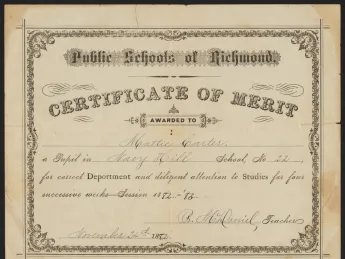 Public Schools of Richmond.
CERTIFICATE OF MERIT
AWARDED TO
Mattie Carter,
a Pupil in Navy Hill School, No. 22,
for correct Deportment and diligent attention to Studies for four
successive weeks—Session 1882-'83.
B. McDaniel, Teacher
November 24th 1882